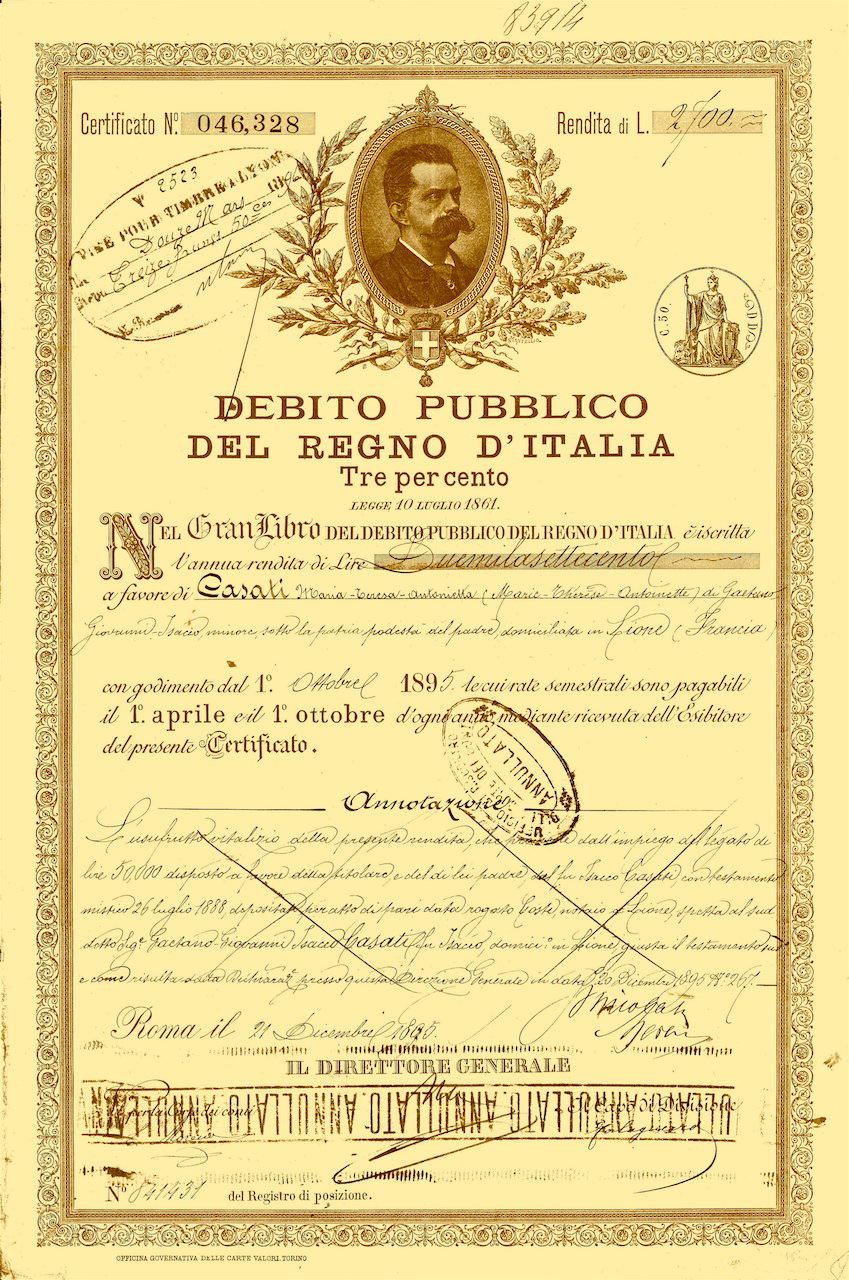 83914
Certificato Nº. 046,328
Rendita di L. 2700.=
Nº 2523
VISÉ POUR TIMBRE A LYON
Douze Mars 189
Treize francs 50 ces
C. 50.
DEBITO PUBBLICO
DEL REGNO D'ITALIA
Tre per cento
LEGGE 10 LUGLIO 1861.
NEL Gran Libro DEL DEBITO PUBBLICO DEL REGNO D'ITALIA è iscritta
l'annua rendita di Lire Duemilasettecento
a favore di Casati Maria-Teresa-Antonietta (Marie-Thérèse-Antoinette) di Gaetano
Giovanni-Isacco, minore, sotto la patria podestà del padre, domiciliata in Lione (Francia)
con godimento dal 1º. Ottobre 1895. le cui rate semestrali sono pagabili
il 1º. aprile e il 1º. ottobre d'ogni anno mediante ricevuta dell'Esibitore
del presente Certificato.
ANNULLATO
Annotazione
L'usufrutto vitalizio della presente rendita, che proviene dall'impiego del legato di
lire 50,000 disposto a favore della titolare, e del di lei padre, dal fu Isacco Casati, con testamento
mistico 26 luglio 1888, depositato per atto di pari data rogato Coste, notaio a Lione, spetta al sud
detto Sigr. Gaetano-Giovanni Isacco Casati fu Isacco, domicº. in Lione, giusta il testamento sudº
e come risulta dalla Dichiaraz. presso questa Direzione Generale in data 20 Dicembre 1895 Nº. 267.
Roma il 21 Dicembre 1895.
IL DIRETTORE GENERALE
ANNULLATO ANNULLATO ANNULLATO ANNULLATO
Il Capo di Divisione
Nº 841431 del Registro di posizione.
OFFICINA GOVERNATIVA DELLE CARTE VALORI. TORINO